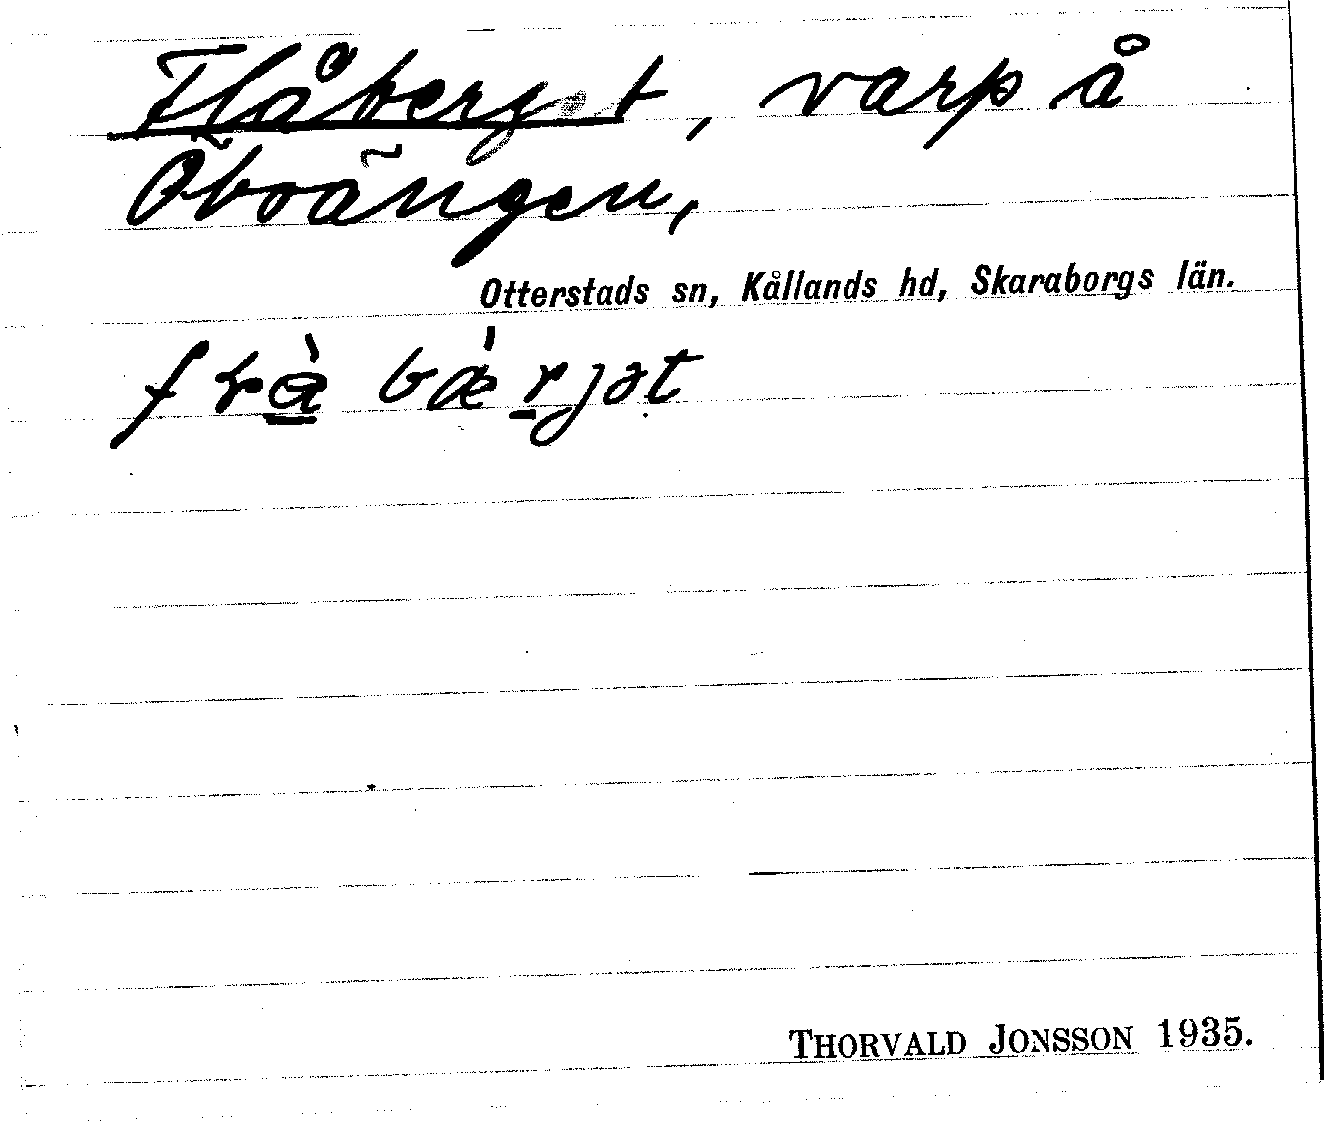 Flåberget, varp å
Öboängen,
Otterstads sn, Kållands hd, Skaraborgs län.
THORVALD JONSSON 1935.